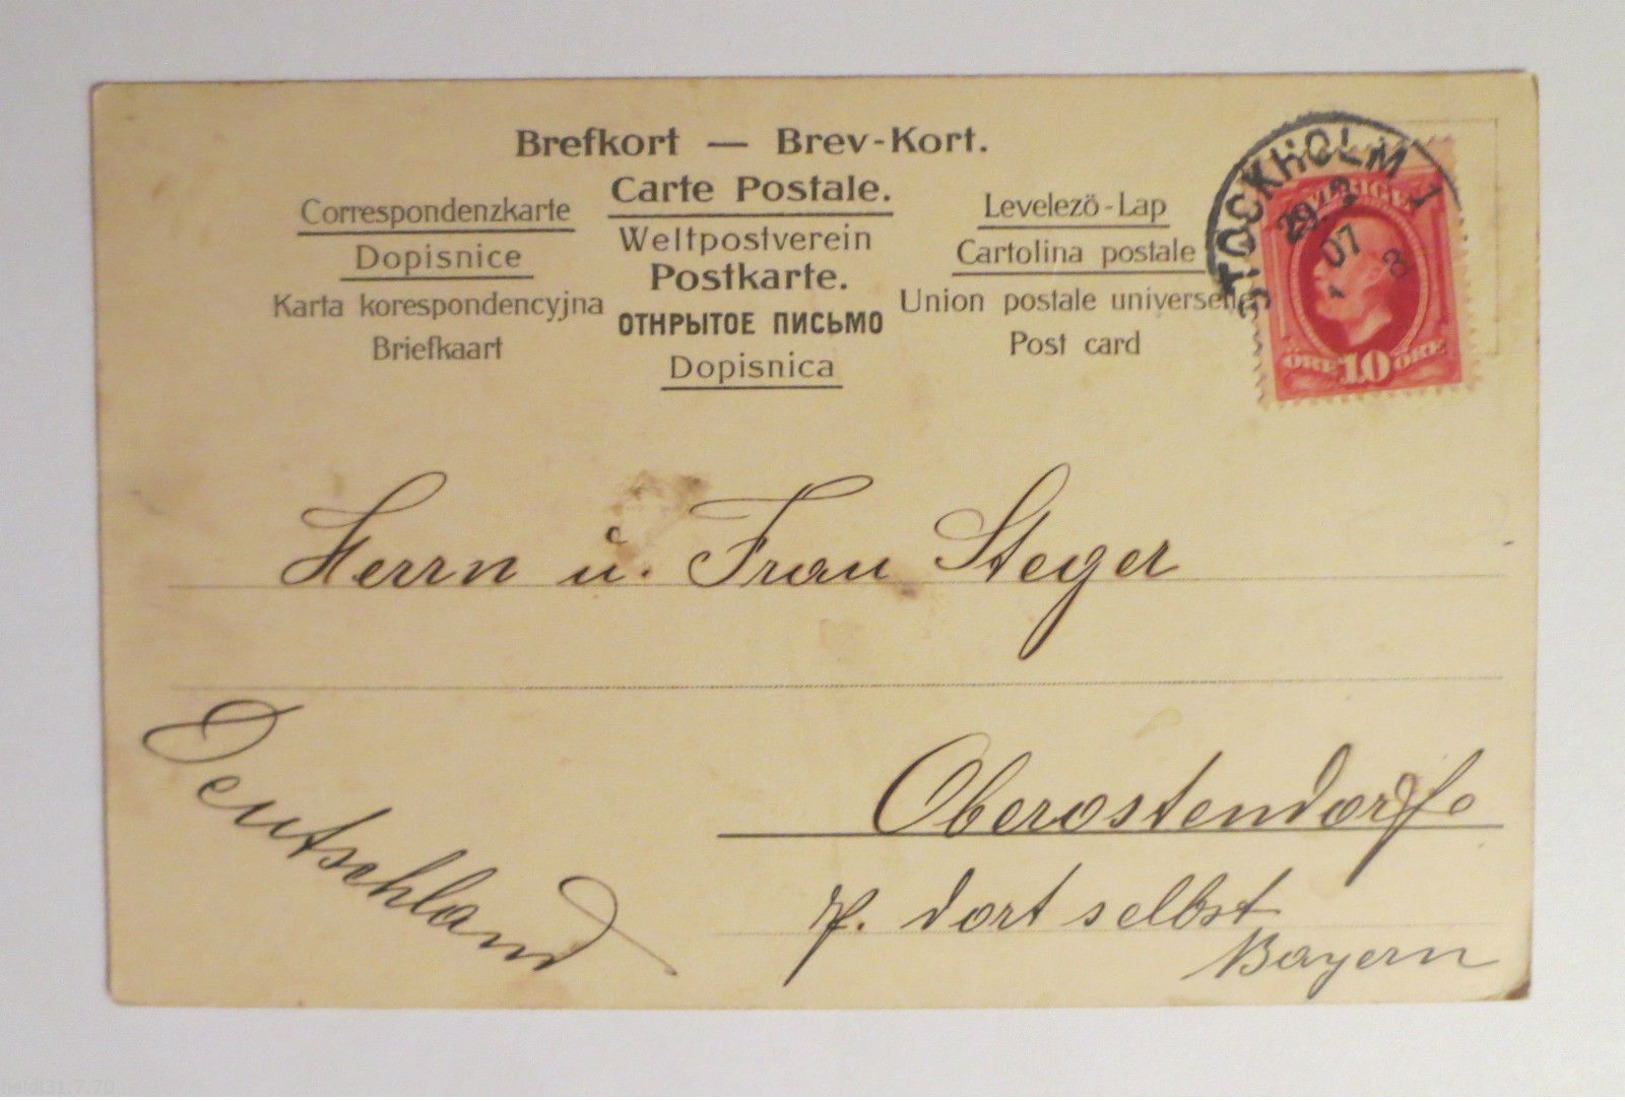 Brefkort — Brev-Kort.
Carte Postale.
Weltpostverein
Postkarte.
ОТНРЫТОЕ ПИСЬМО
Dopisnica
Correspondenzkarte
Dopisnice
Karta korespondencyjna
Briefkaart
Levelezö-Lap
Cartolina postale
Union postale universelle
Post card
STOCKHOLM 1
07
8
SVERIGE
ÖRE 10 ÖRE
Herrn u. Frau Steger
Oberostendorf
p. dortselbst
Bayern
Deutschland
heidi31.7.70